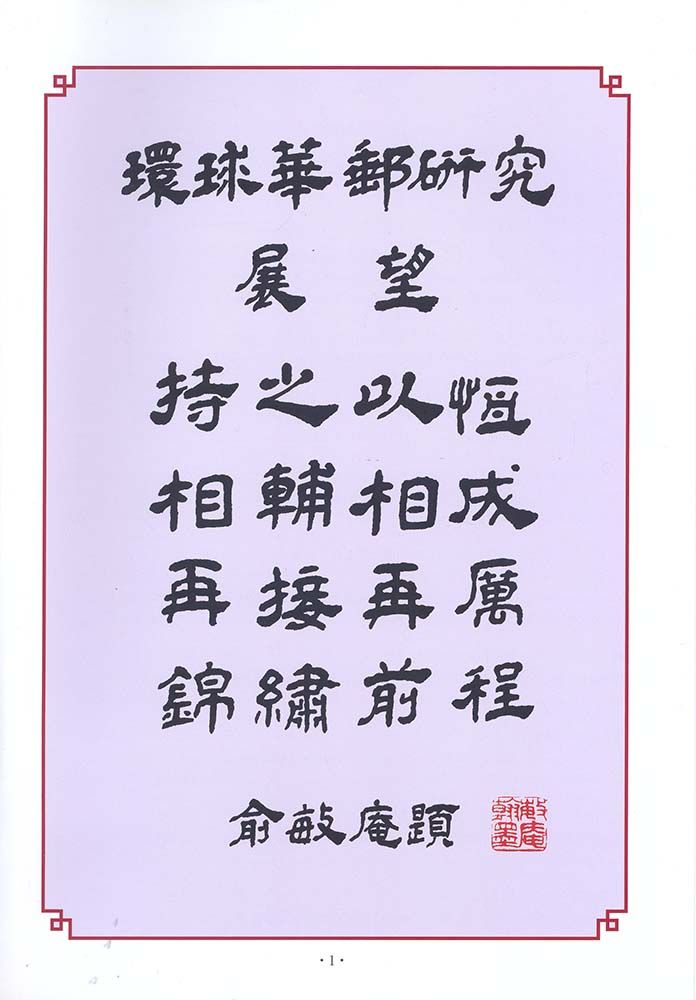 環球華郵研究
展望
持之以恒
相輔相成
再接再厲
錦繡前程
俞敏庵題
敏庵翰墨
·1·